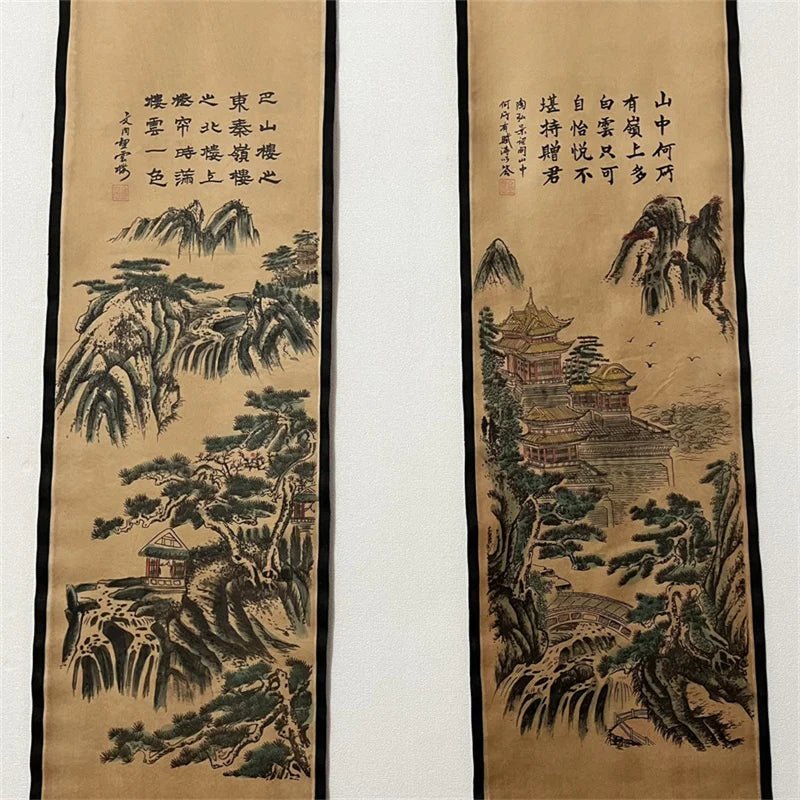 山中何所
有嶺上多
白雲只可
自怡悅不
堪持贈君
陶弘景詔問山中
何所有賦詩以答
巴山樓之
東秦嶺樓
之北樓上
捲帘時滿
樓雲一色
文同望雲樓